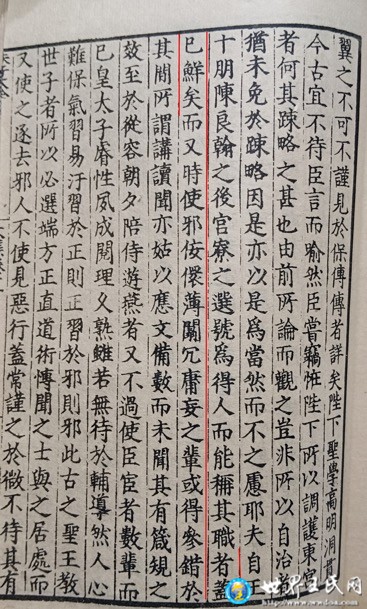 翼之不可不謹見於保傅傳者詳矣陛下聖學高明洞貫
今古宜不待臣言而喻然臣嘗竊恠陛下所以調護東宮
者何其疎略之甚也由前所論而觀之豈非所以自治者
猶未免於疎略因是亦以是爲當然而不之慮耶夫自王
十朋陳良翰之後官寮之選號爲得人而能稱其職者蓋
已鮮矣而又時使邪佞儇薄闒冗庸妄之輩或得參錯於
其間所謂講讀聞亦姑以應文備數而未聞其有箴規之
效至於從容朝夕陪侍遊燕者又不過使臣宦者數輩而
已皇太子睿性夙成閱理久熟雖若無待於輔導然人心
難保氣習易汙習於正則正習於邪則邪此古之聖王教
世子者所以必選端方正直道術博聞之士與之居處而
又使之逐去邪人不使見惡行蓋常謹之於微不待其有
世界王氏网